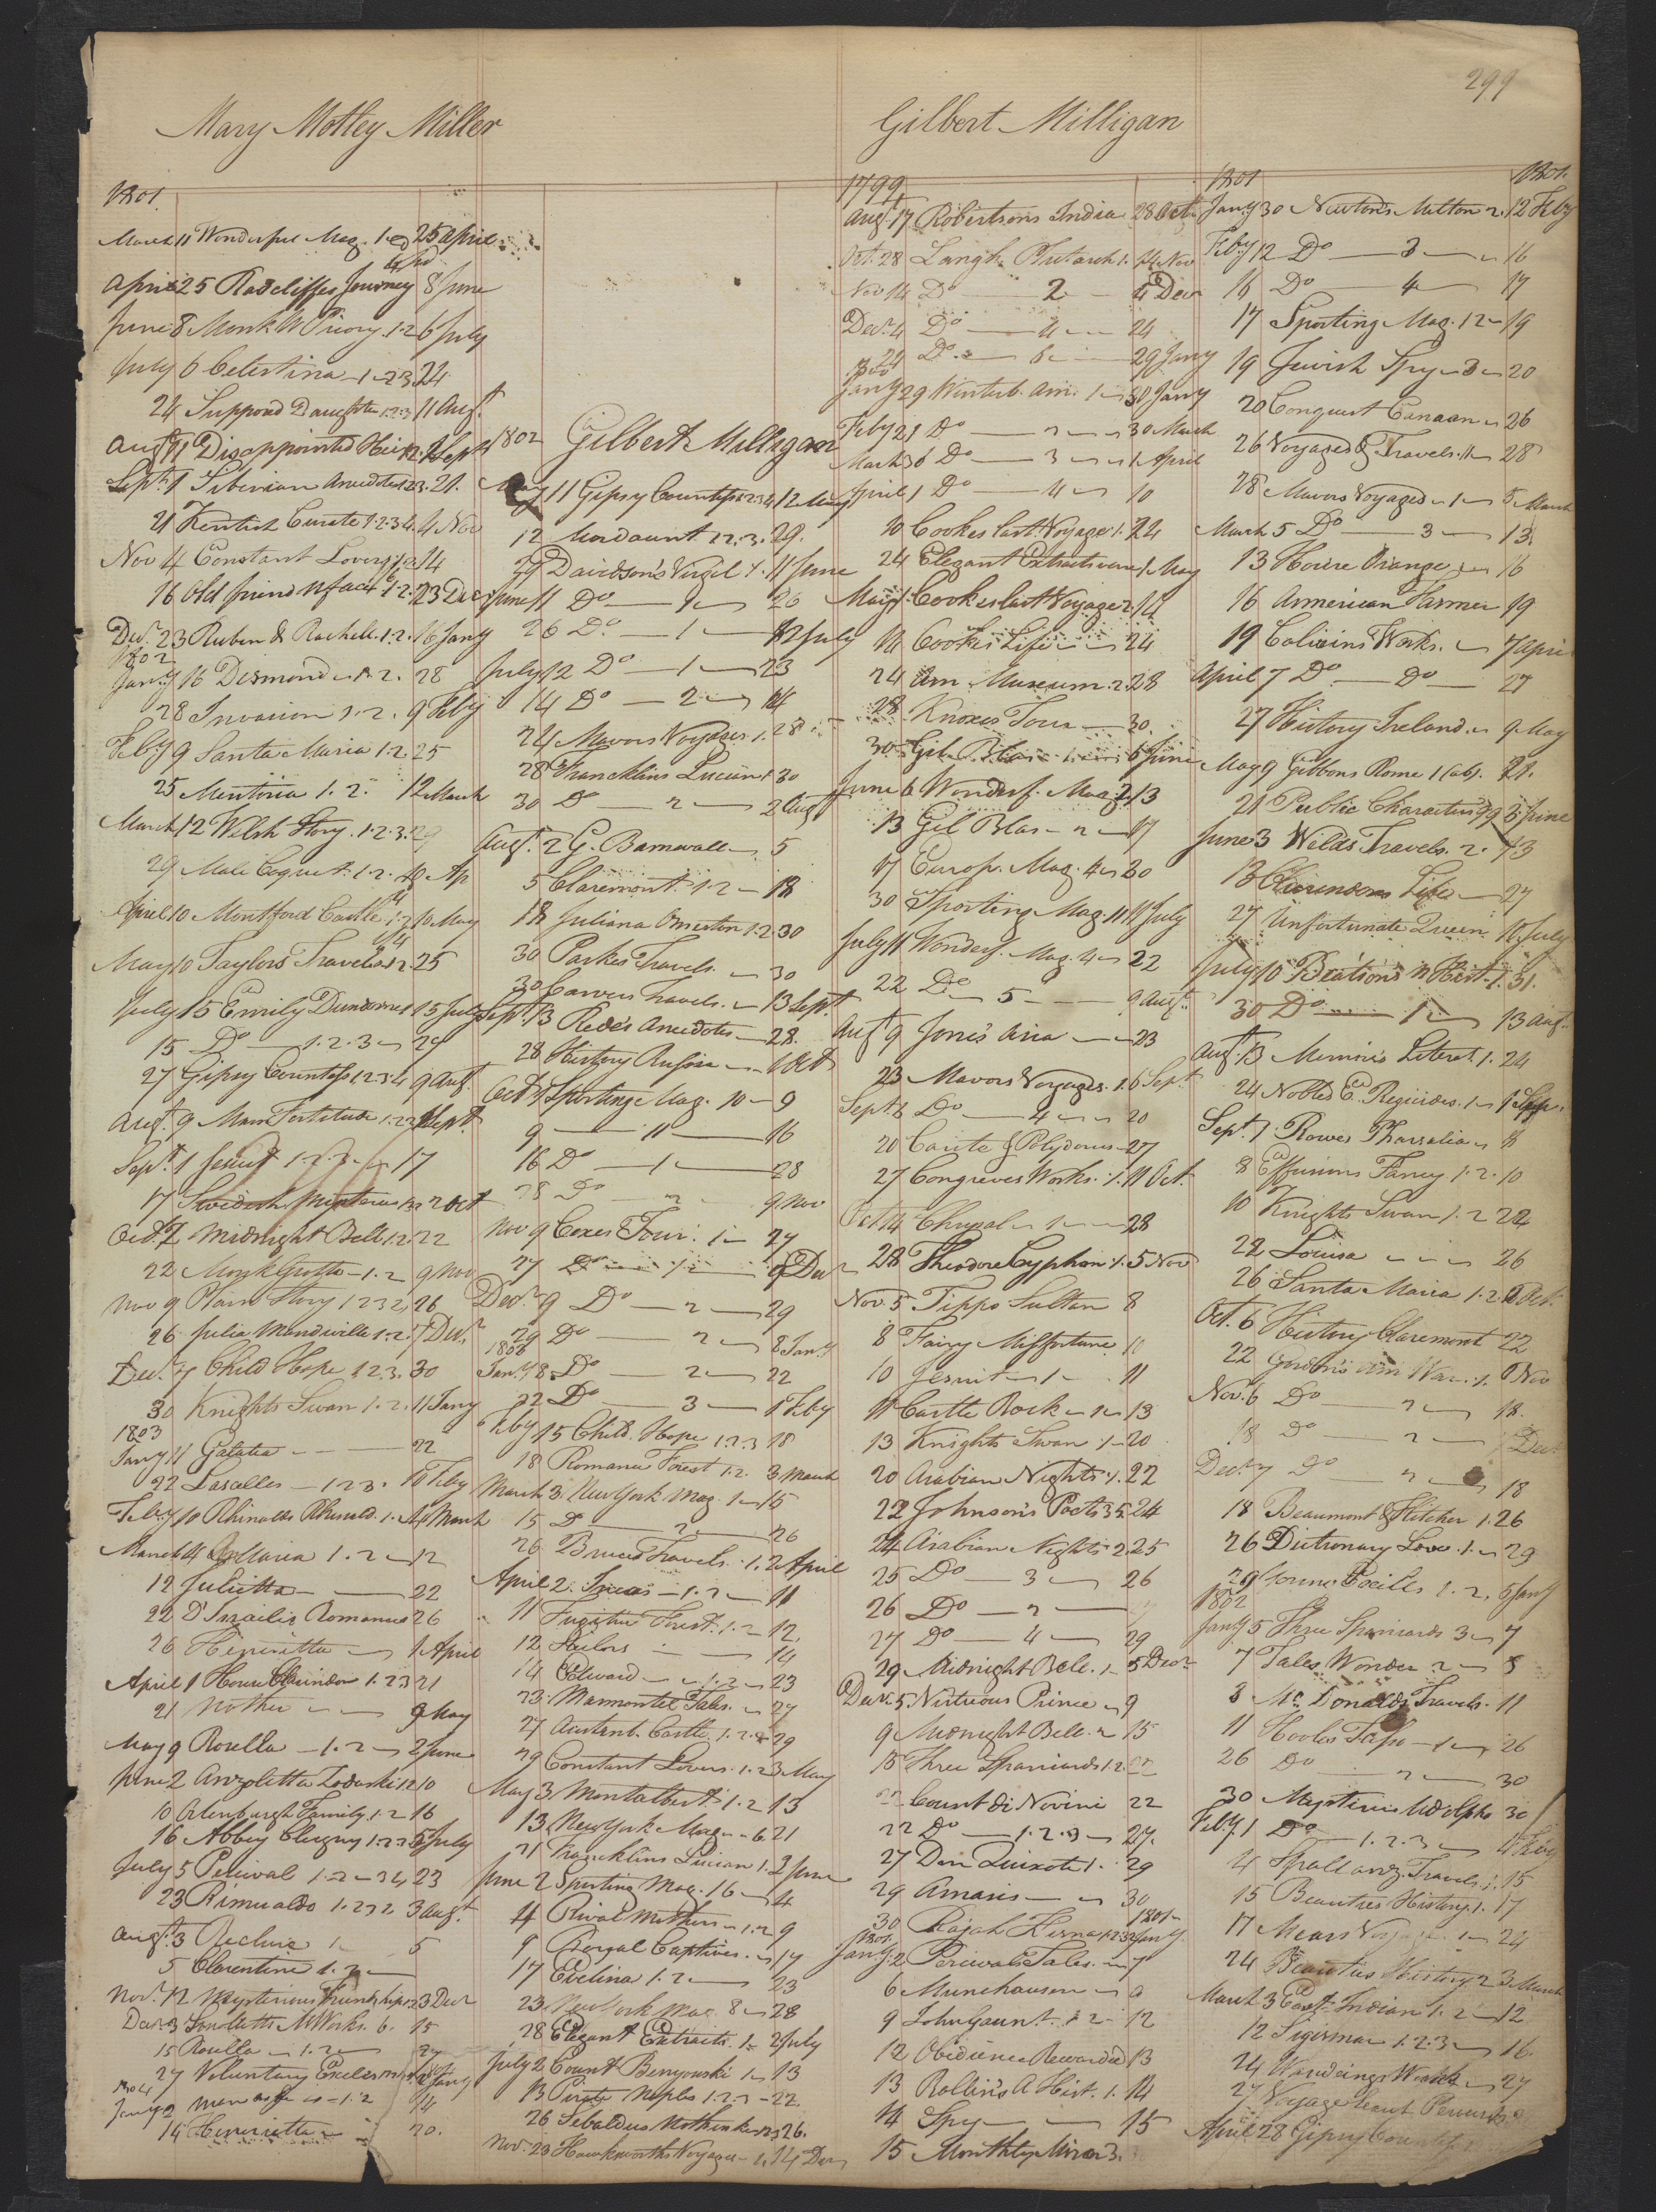 299
Mary Motley Miller
1801
March 11 Wonderful Mag. 1. 25 April
April 25 Radcliffes Journey 8 June
June 8 Monk W Priory. 1.2 6 July
July 6 Celestina 1.2.3. 24
24 Supposd Daughter 1.2.3 11 Augt
Augt 11 Disappointed Heir 1.2. 1 Sept
Sept. 1 Siberian Anecdotes 1.2.3. 21.
21 Kentish Curate 1.2.3.4. 4 Nov
Nov 4 Constant Lovers 1.2 14
16 Old friend N face 1.2. 23 Decr
Decr. 23 Ruben & Rachell. 1.2. 16 Jany
1802
Jany 16 Desmond 1.2. 28
28 Invasion 1.2. 9 Feby
Feby 9 Santa Maria 1.2. 25
25 Mentoria 1.2. 12 March
March 12 Welsh Story. 1.2.3. 29
29 Male Coquet. 1.2. 10 Ap
April 10 Montford Castle 1.2 10 May
May 10 Taylors Travels 1.2. 25
July 15 Emily Dundorne 15 July
15 Do 1.2.3 27
27 Gipsy Countess 1.2.3.4 9 Augt
Augt. 9 Mans Fortitude 1.2.3 1 Sept.
Sept. 1 Jesuit 1.2.3. 17
17 Swedish Mysteries 1.2 2 Oct
Oct. 2 Midnight Bell 1.2. 22
22 Monk Grotto 1.2 9 Nov
Nov 9 Plain Story 1 2 3 2, 26
26 Julia Mandiville 1.2. 7 Decr
Decr. 7 Child Hope 1.2.3. 30
30 Knights Swan 1.2. 11 Jany
1803
Jany 11 Galatea 22
22 Lasalles 1.2.3. 10 Feby
Feby 10 Rhinaldo Rhinald. 1. 4 March
March 4 St Maria 1.2 12
12 Julietta 22
22 D'Israilis Romances 26
26 Henrietta 1 April
April 1 House Clarindon 1.2.3 21
21 Mother 9 May
May 9 Rosella 1.2 2 June
June 2 Anzoletta Zadoski 1.2 10
10 Orlenburgh Family. 1.2 16
16 Abbey Clugny 1.2.3 5 July
July 5 Percival 1.2.3.4 23
23 Rimualdo 1.2.3.2 3 Augt.
Augt. 3 Recluse 1 5
5 Clarentine 1.2
Novr. 12 Mysterious Friendship 1.2 3 Decr
Decr 3 Smolletts M Works. 6. 15
15 Rosella 1.2 27
27 Voluntary Exile 2 Jany
1804
Jany 2 1.2 14
14 Henrietta 20.
1802 Gilbert Milligan
May 11 Gipsy Countess 1.2.3.4 12 May
12 Mordaunt 1.2.3. 29.
29 Davidson's Virgil 1. 11 June
June 11 Do 1 26
26 Do. 1 12 July
July 12 Do 1 23
14 Do 2 14
24 Mavors Voyages 1. 28
28 Francklins Lucian 1 30
30 Do 2 2 Augt
Augt. 2 G. Barnewall 5
5 Claremont. 1.2 18
18 Juliana Ormeston 1.2 30
30 Parkes Travels. 30
30 Carvers Travels. 13 Sept.
Sept. 13 Rede's Anecdotes 28.
28 History Russia 1 Oct
Oct. 1 Sporting Mag. 10 9
9 11 16
16 Do 1 28
28 Do 2 9 Nov
Nov 9 Coxes Tour. 1 27
27 Do 1 9 Decr
Decr. 9 Do 2 29
29 Do 2 8 Jany
1803
Jany 8 Do 2 22
22 Do 3 1 Feby
Feby 15 Child. Hope 1.2.3 18
18 Romance Forest 1.2. 3 March
March 3. New York Mag. 1 15
15 Do 2 26
26 Bruces Travels. 1. 2 April
April 2. Incas 1.2 11
11 Fugitive Forest. 1.2 12.
12 Sailors 14
14 Edward 1.2 23
23. Marmontel Tales. 27
27 Austenb. Castle 1.2. 29
29 Constant Lovers. 1.2 3 May
May 3. Montalbert. 1.2 13
13 New York Mag. 6 21
21 Francklins Lucian 1. 2 June
June 2 Sporting Mag. 16 4
4 Rival Mothers 1.2 9
9 Royal Captives. 17
17 Evelina 1.2 23
23. New York Mag. 8 28
28 Elegant Extracts. 1. 2 July
July 2 Count Benyouski 1 13
13 Pirate Naples 1.2.3 22.
26 Sebaldus Nothanker 1.2. 26.
Nov. 23 Hawkesworths Voyages 1. 14 Decr
Gilbert Milligan
1799
Augt 17 Robertsons India 28 Oct.
Oct. 28 Langh. Plutarch 1. 14 Nov
Nov 14 Do 2 4 Decr
Decr. 4 Do 4 24
24 Do. 6 29 Jany
1800
Jany 29 Winterb. Am. 1 30 Jany
Feby 21 Do 2 30 March
March 30 Do 3 1 April
April 1 Do 4 10
10 Cookes last Voyage 1. 24
24 Elegant Extracts verse 1 May
May 1. Cookes last Voyage 2 14
14 Cookes Life 24
24 Am Museum. 2. 28
28 Knoxes Tour 30.
30 Gil Blas 1 6 June
June 6 Wonderf. Mag. 2 13
13 Gil Blas 2 17
17 Europ. Mag. 4 30
30 Sporting Mag. 11 11 July
July 11 Wonderf. Mag. 4 22
22 Do 5 9 Augt.
Augt 9 Jone's Asia 23
23 Mavors Voyages. 1. 6 Sept.
Sept 6 Do 4 20
20 Carite & Polydorus 27
27 Congreves Works. 1. 11 Oct.
Oct 14 Chrysal 1 28
28 Theodore Cyphon 1. 5 Nov
Nov. 5 Tippo Sultan 8
8 Fairy Misfortune 11
10 Jesuit 1 11
11 Castle Rock 1 13
13 Knights Swan 1 20
20 Arabian Nights 1. 22
22 Johnson's Poets 35 24
24 Arabian Nights 2. 25
25 Do 3 26
26 Do 2
27 Do 4 29
29 Midnight Bell. 1 5 Decr
Decr. 5. Virtuous Prince 9
9 Midnight Bell. 2 15
15 Three Spaniards 1.2
Count di Novini 22
22 Do 1.2.3 27.
27 Don Quixote 1. 29
29 Amasis 30
30 Rajah Kisna 1.2.3 2 Jany.
1801
1801
Jany. 2 Percivals Tales. 7
6 Munchausen 9
9 John Gaunt. 1 2 12
12 Obidience Rewarded 13
13 Rollin's A Hist. 1. 14
14 Spy 15
15 Monthly Miror 3.
1801 1801.
Jany 30 Newton's Milton 2. 12 Feby
Feby 12 Do 3 16
16 Do 4 17
17 Sporting Mag. 12 19
19 Jewish Spy 3 20
20 Conquest Canaan 26
26 Voyages & Travels. 11 28
28 Mavors Voyages 1 5 March
March 5 Do 3 13.
13 Horde Orange 16
16 American Farmer 19
19 Colivins Works. 7 April
April 7 Do Do 27
27 History Ireland. 9 May
May 9 Gibbons Rome 1 (ab). 21.
21 Public Characters 99 3 June
June 3 Welds Travels. 2. 13
13 Clarendons Life 27
27 Unfortunate Queen 10 July
July 10 Beatsons N Hist. 1. 31.
30 Do 1 13 Augt.
Augt. 13 Memoirs Literat. 1. 24
24 Nobles E. Regicides. 1 1 Sep.
Sept. 1. Rowes Pharsalia 8
8 Effusions Fancy 1.2. 10
10 Knights Swan 1.2 22
22 Louisa 26
26 Santa Maria 1.2. 6 Oct.
Oct. 6 History Claremont 22
22 Gordon's Am War. 1. 6 Nov
Nov. 6 Do 2 18.
18 Do 2 7 Decr
Decr. 7 Do 2 18
18 Beaumont & Fletcher 1. 26
26 Dictionary Love. 1. 29
29 Young Cecilis 1.2. 5 Jany
1802
Jany 5 Three Spaniards 3 7
7 Tales Wonder 2 8
8 Mc Donalds Travels. 11
11 Hooles Tasso 1 26
26 Do 2 30
30 Mysteries Udolpho 30
Feby. 1 Do 1.2.3 4 Feby
4 Spallanz. Travels. 1. 15
15 Beauties History. 1. 17
17 Mears Voyage. 1 24
24 Beauties History. 2 3 March
March 3 East Indian 1.2 12
12 Sigismar 1.2.3 16.
24 Wandrings Works 27
27 Voyage
April 28 Gipsy Countess